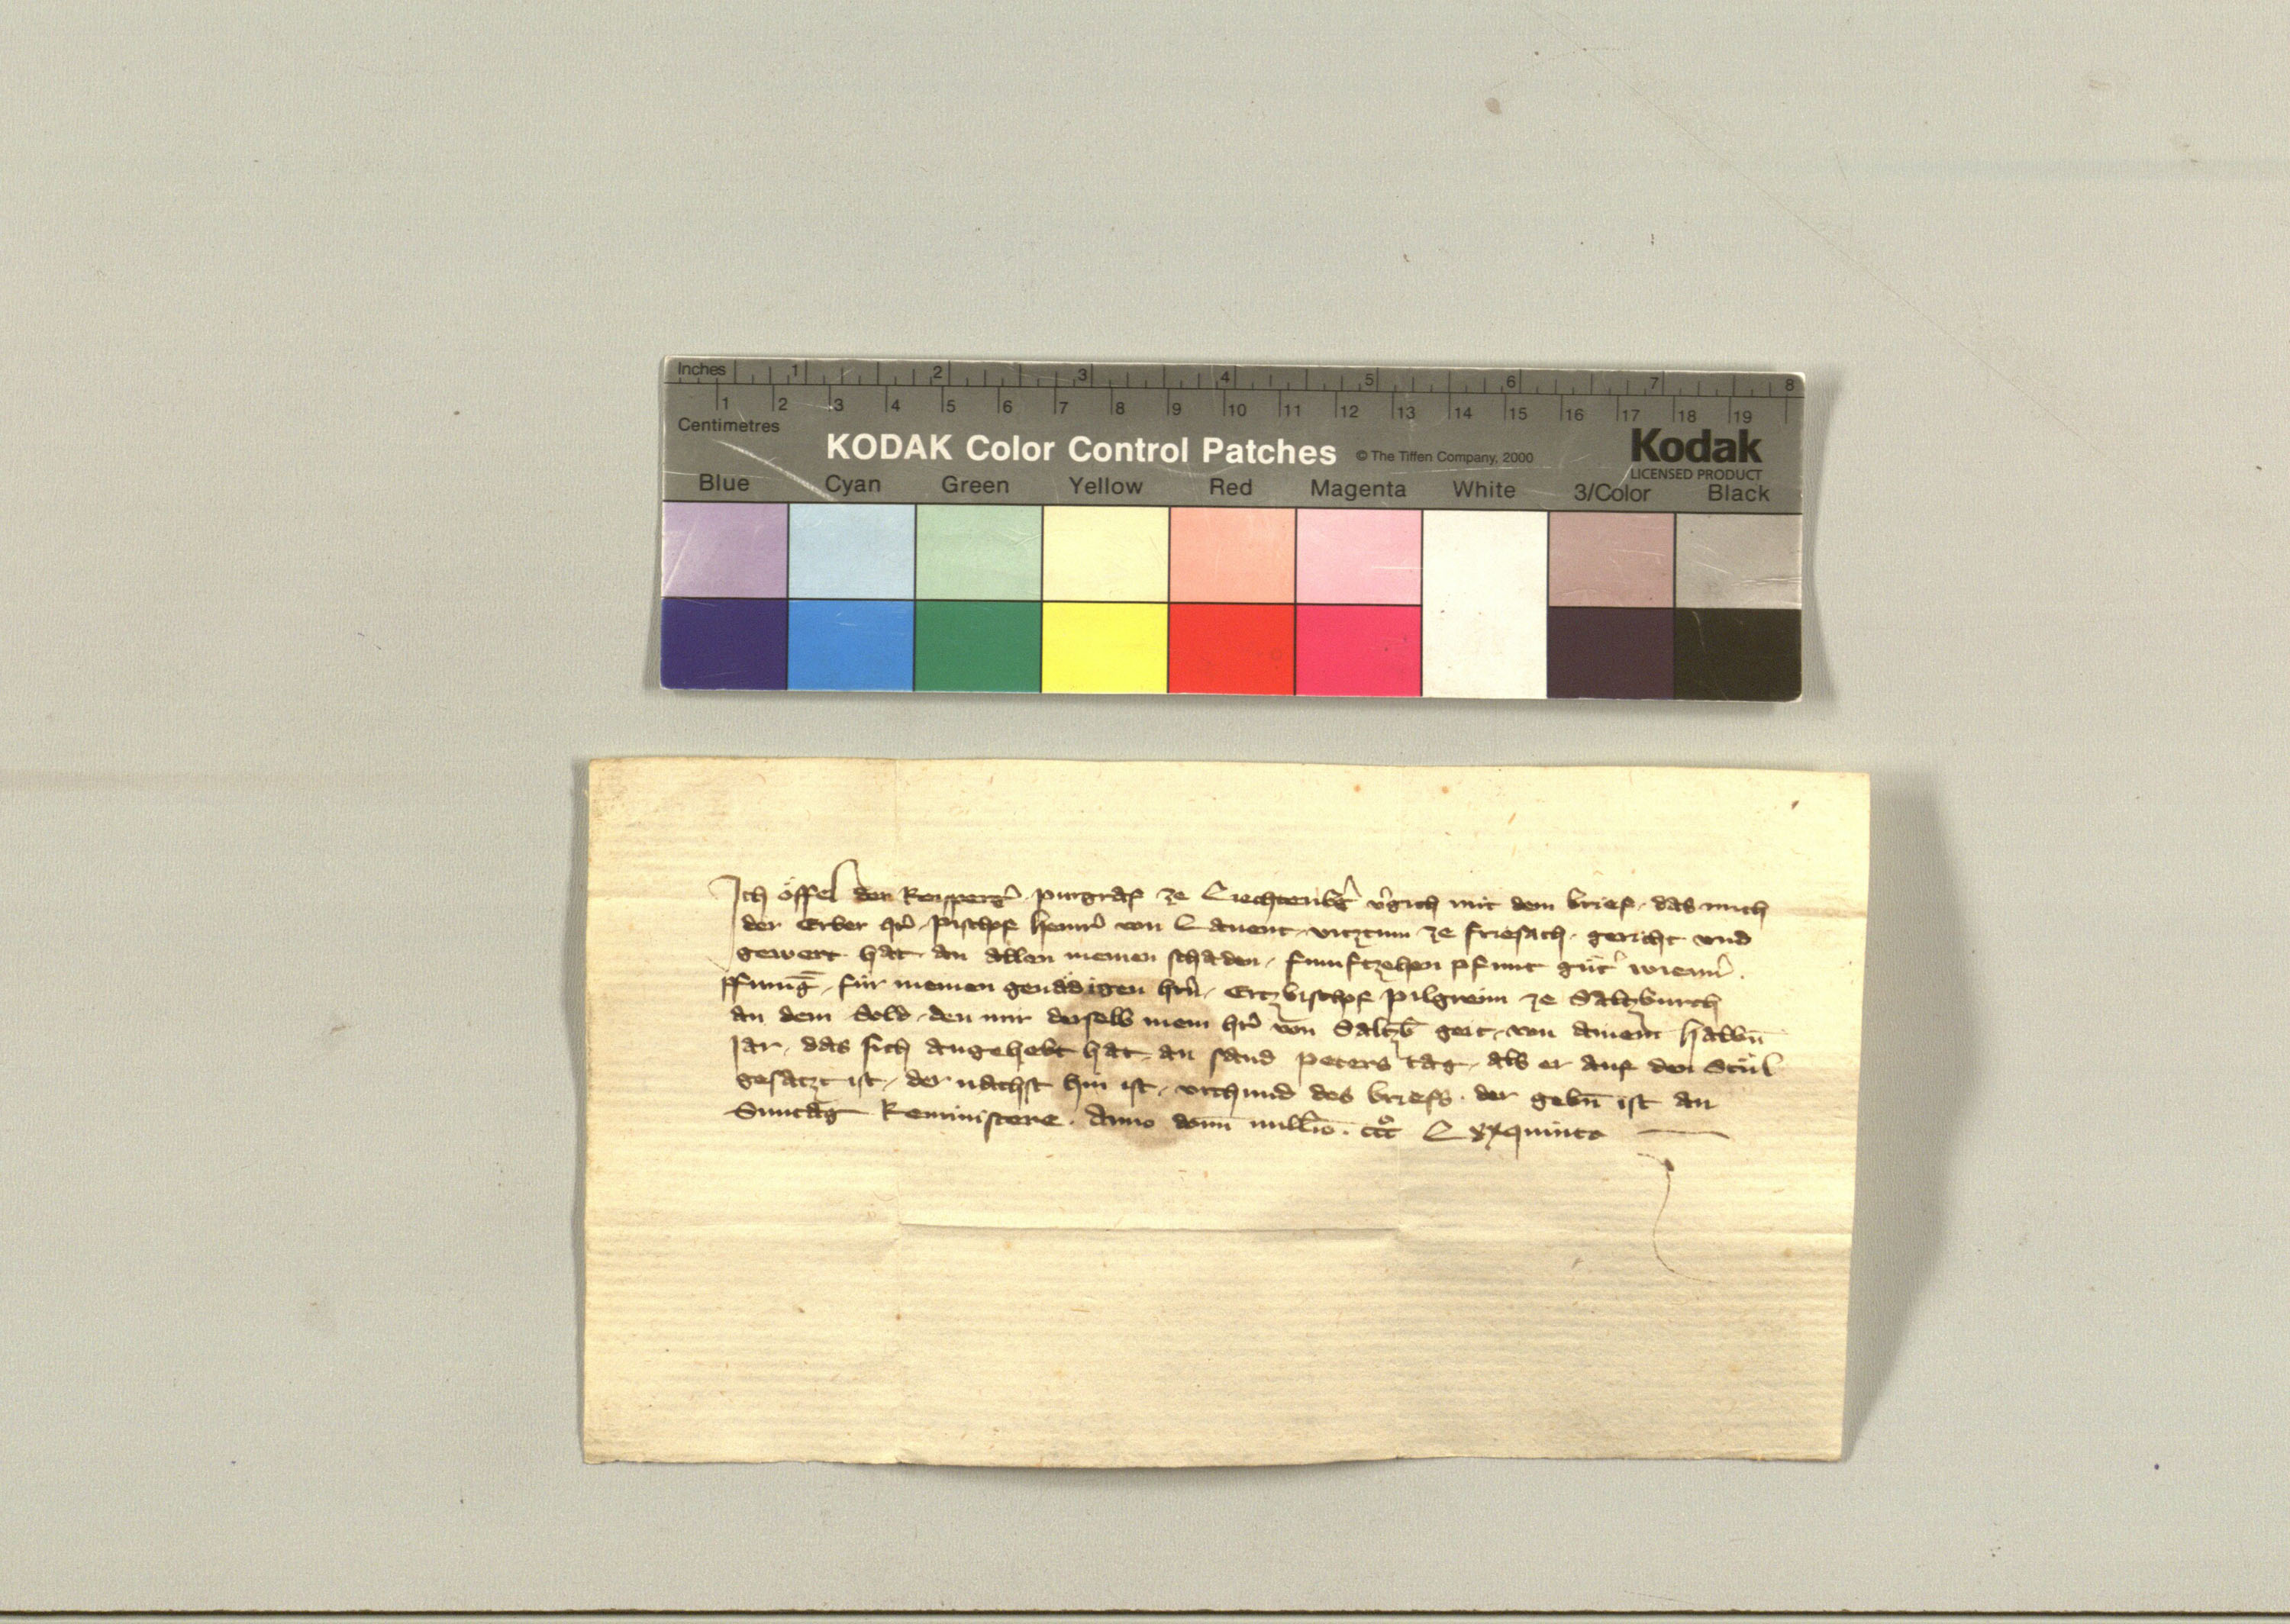 Inches 1 2 3 4 5 6 7 8
1 2 3 4 5 6 7 8 9 10 11 12 13 14 15 16 17 18 19
Centimetres
KODAK Color Control Patches © The Tiffen Company, 2000 Kodak
LICENSED PRODUCT
Blue Cyan Green Yellow Red Magenta White 3/Color Black
Ich öffel der purgraf ze v̾gich mit dem brief, das mich
der Erber hr̾, Pischof heinr̾ von Lauent, vitztum ze friesach, gericht vnd
gewert hat, an allen meinen schaden, fumftzehen pfunt güt̾ wienn̾
pfennīg, für meinen genädigen hr̄n, Ertzbischof pilgreim ze Saltzburch
an dem Sold, den mir derselb mein hr̾ von Saltzb̄ geit, von ainem halbn̄
Jar, das sich angehebt hat, an sand peters tag, als er auf den Stül
gesatzt ist, der nächst hin ist, vrchund des briefs, der gebn̄ ist an
Suntag Reminiscere. Anno domi̅ mill̅io. ccc° Lxxquinto